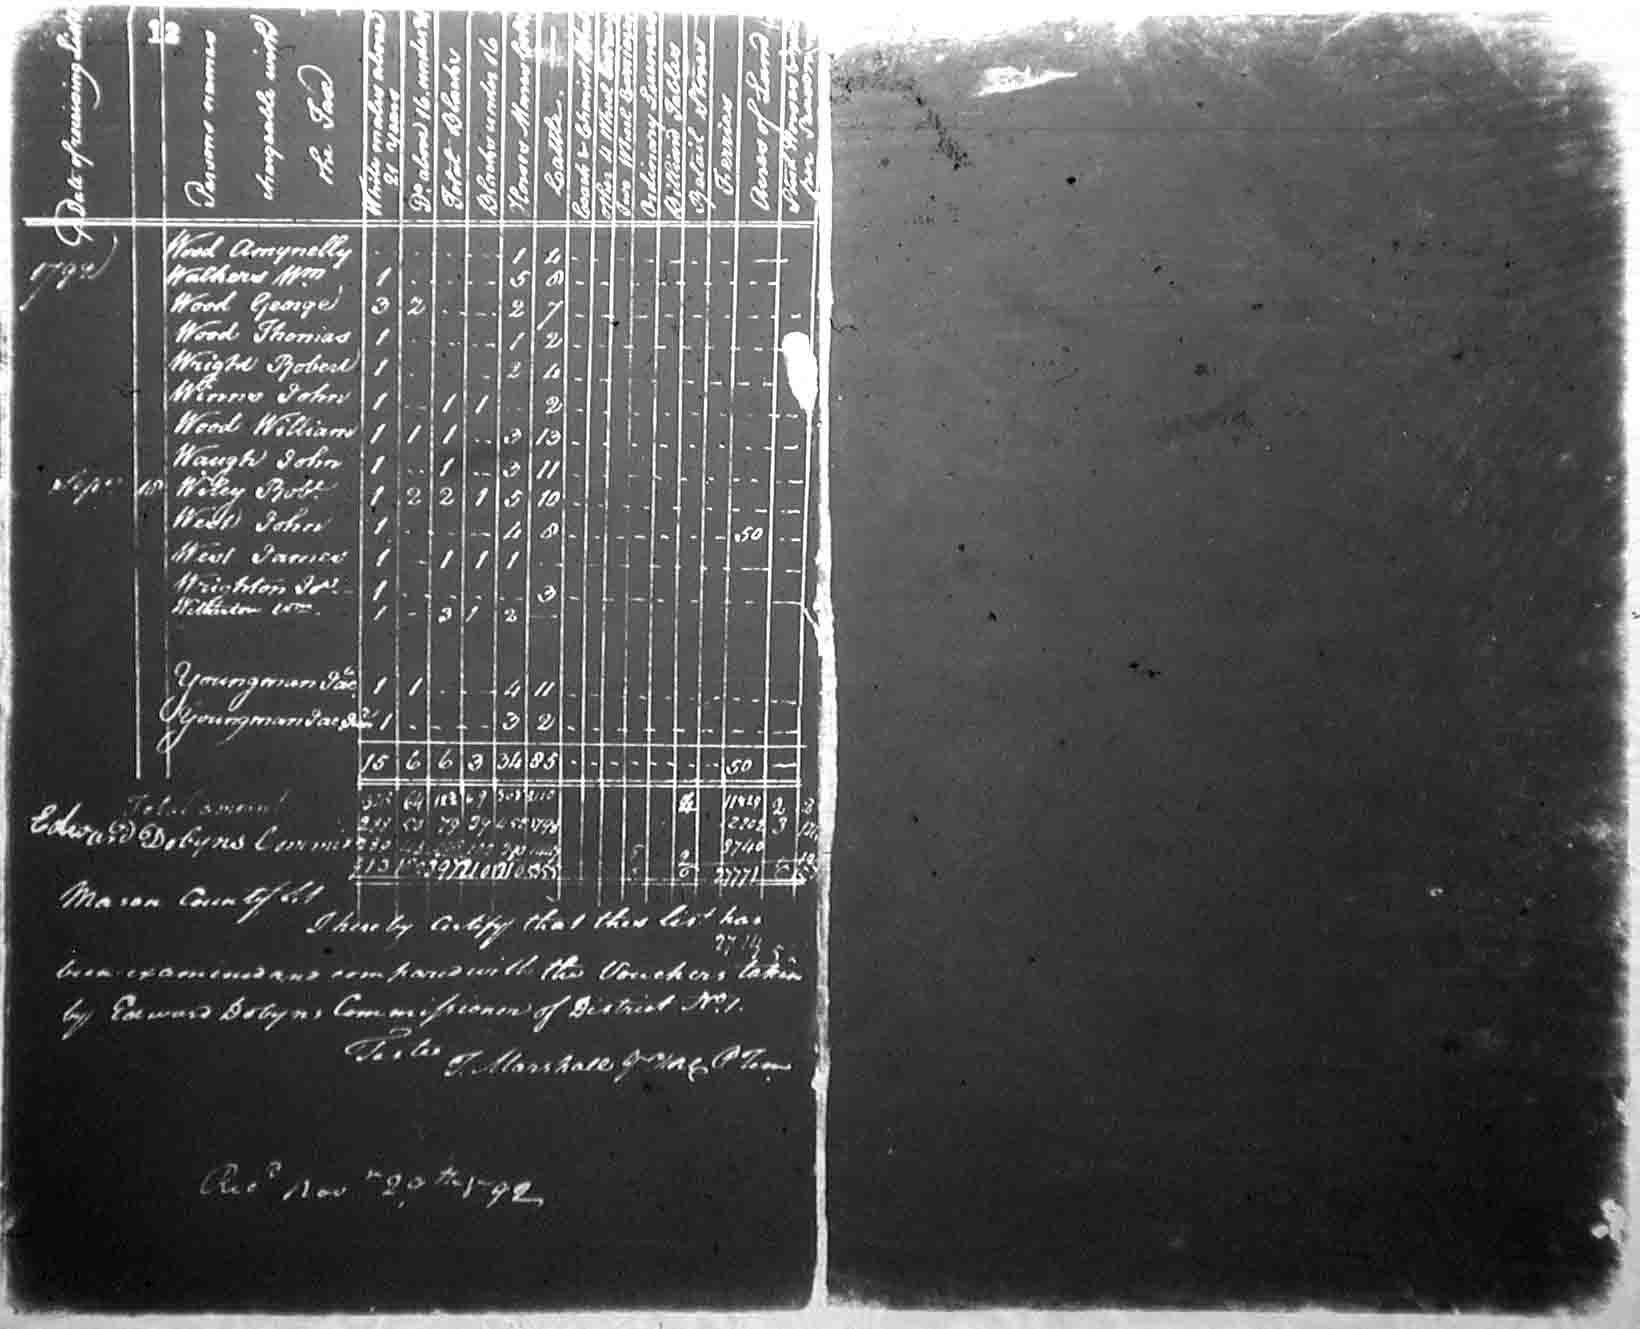 Date of receiving Lists
Persons names
chargeable with
the Tax
White males above
21 Years
Do. above 16 under 21
Total Blacks
Blacks under 16
Horses Mares
Cattle.
other 4 Wheel
Two Wheel
Ordinary License
Billiard Tables
Retail Stores
Ferries
Acres of Land
per Season
1792
Wood Amynelly 1 4
Walkers Wm 1 5 8
Wood George 3 2 2 7
Wood Thomas 1 1 2
Wright Robert 1 2 4
Winns John 1 1 1 2
Wood William 1 1 1 3 13
Waugh John 1 1 3 11
Sepr 18 Wiley Robt 1 2 2 1 5 10
West John 1 4 8 50
West James 1 1 1 1
Wrighton 1 3
Wm 1 3 1 2
Youngman Jac 1 1 4 11
Youngman Jac Jur 1 3 2
15 6 6 3 34 85 50
Total amount
Edward Dobyns
8740
Mason County
I hereby certify that this list has
been examined and compared with the Vouchers taken
by Edward Dobyns Commissioner of District No 1.
Teste
T. Marshall
Recd Novr 20th 1792